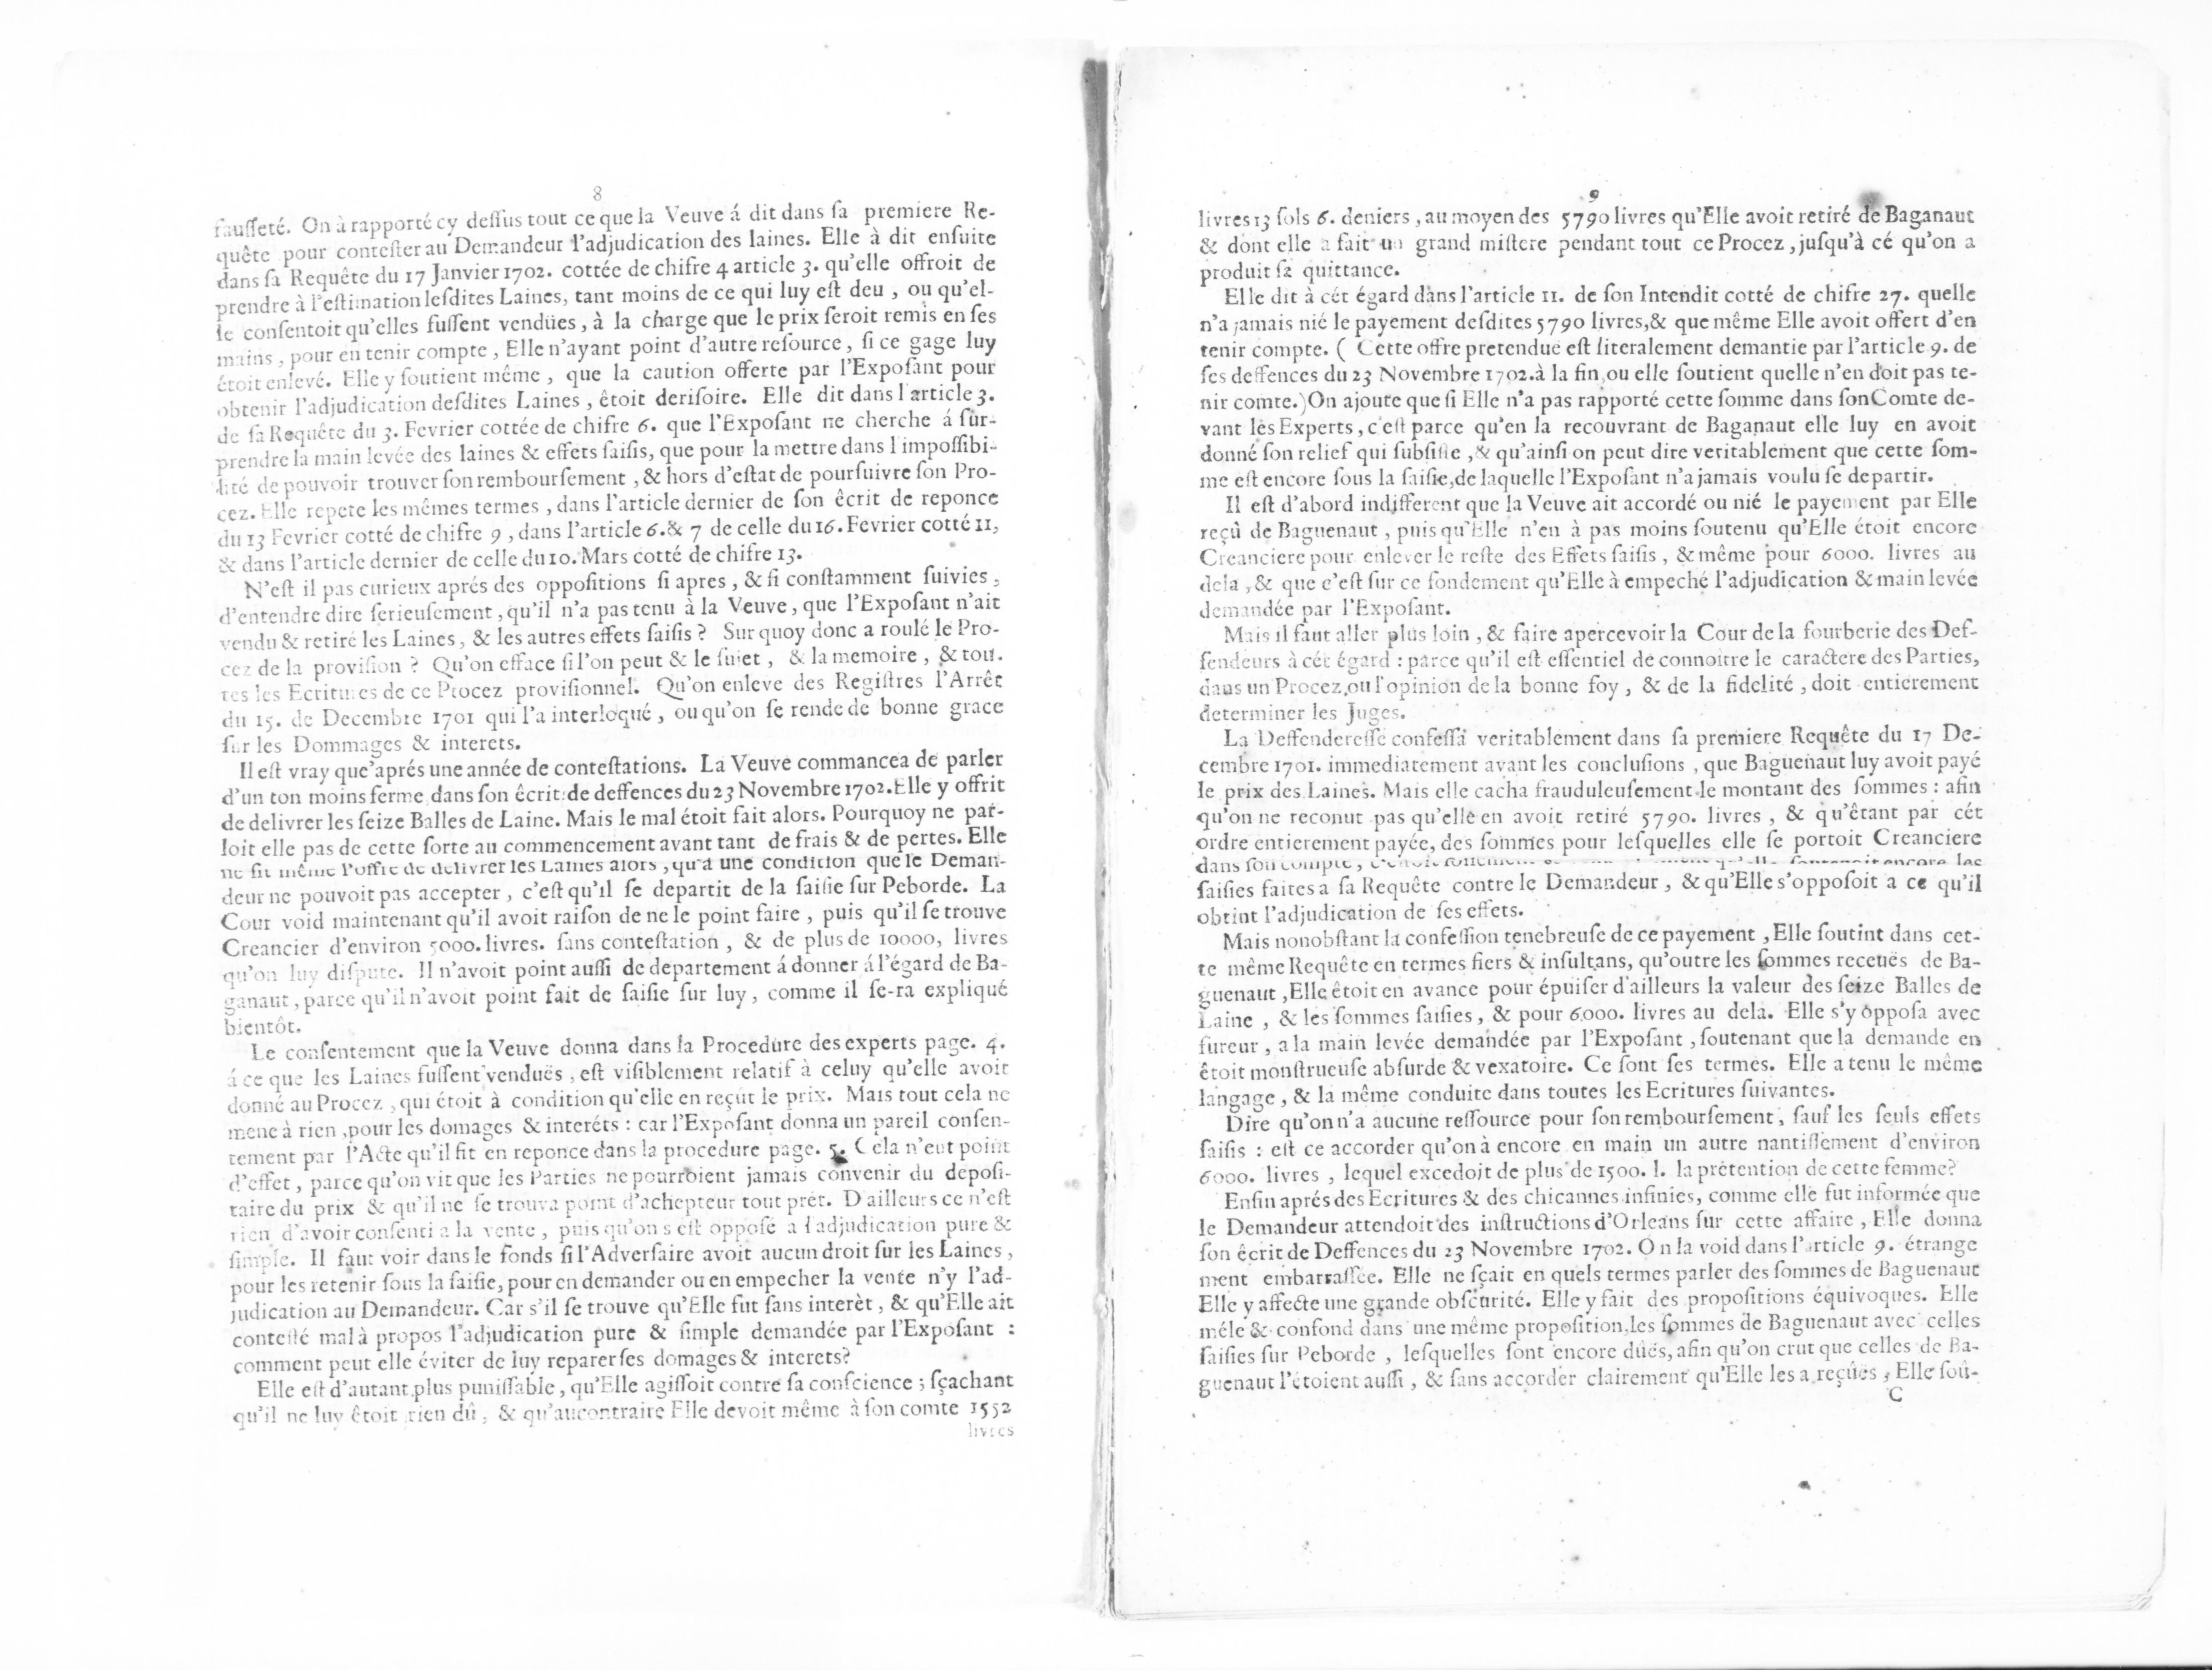 8
fausseté. On à rapporté cy dessus tout ce que la Veuve á dit dans sa premiere Re-
quête pour contester au Demandeur l'adjudication des laines. Elle à dit ensuite
dans sa Requête du 17 Janvier 1702. cottée de chifre 4 article 3. qu'elle offroit de
prendre à l'estimation lesdites Laines, tant moins de ce qui luy est deu, ou qu'el-
le consentoit qu'elles fussent vendües, à la charge que le prix seroit remis en ses
mains, pour en tenir compte, Elle n'ayant point d'autre resource, si ce gage luy
étoit enlevé. Elle y soutient même, que la caution offerte par l'Exposant pour
obtenir l'adjudication desdites Laines, êtoit derisoire. Elle dit dans l'article 3.
de sa Requête du 3. Fevrier cottée de chifre 6. que l'Exposant ne cherche á sur-
prendre la main levée des laines & effets saisis, que pour la mettre dans l'impossibi-
lité de pouvoir trouver son remboursement, & hors d'estat de poursuivre son Pro-
cez. Elle repete les mêmes termes, dans l'article dernier de son êcrit de reponce
du 13 Fevrier cotté de chifre 9, dans l'article 6. & 7 de celle du 16. Fevrier cotté 11,
& dans l'article dernier de celle du 10. Mars cotté de chifre 13.
N'est il pas curieux aprés des oppositions si apres, & si constamment suivies,
d'entendre dire serieusement, qu'il n'a pas tenu à la Veuve, que l'Exposant n'ait
vendu & retiré les Laines, & les autres effets saisis? Sur quoy donc a roulé le Pro-
cez de la provision? Qu'on efface si l'on peut & le sujet, & la memoire, & tou-
tes les Ecritures de ce Procez provisionnel. Qu'on enleve des Registres l'Arrêt
du 15. de Decembre 1701 qui l'a interloqué, ou qu'on se rende de bonne grace
sur les Dommages & interets.
Il est vray que'aprés une année de contestations. La Veuve commancea de parler
d'un ton moins ferme dans son êcrit de deffences du 23 Novembre 1702. Elle y offrit
de delivrer les seize Balles de Laine. Mais le mal étoit fait alors. Pourquoy ne par-
loit elle pas de cette sorte au commencement avant tant de frais & de pertes. Elle
ne fit même l'offre de delivrer les Laines alors, qu'à une condition que le Deman-
deur ne pouvoit pas accepter, c'est qu'il se departit de la saisie sur Peborde. La
Cour void maintenant qu'il avoit raison de ne le point faire, puis qu'il se trouve
Creancier d'environ 5000. livres. sans contestation, & de plus de 10000, livres
qu'on luy dispute. Il n'avoit point aussi de departement á donner á l'égard de Ba-
ganaut, parce qu'il n'avoit point fait de saisie sur luy, comme il se-ra expliqué
bientôt.
Le consentement que la Veuve donna dans la Procedure des experts page. 4.
á ce que les Laines fussent venduës, est visiblement relatif à celuy qu'elle avoit
donné au Procez, qui étoit à condition qu'elle en reçut le prix. Mais tout cela ne
mene à rien, pour les domages & interéts: car l'Exposant donna un pareil consen-
tement par l'Acte qu'il fit en reponce dans la procedure page. 5. Cela n'eut point
d'effet, parce qu'on vit que les Parties ne pourroient jamais convenir du deposi-
taire du prix & qu'il ne se trouva point d'achepteur tout prêt. D'ailleurs ce n'est
rien d'avoir consenti a la vente, puis qu'on s'est opposé a l'adjudication pure &
simple. Il faut voir dans le fonds si l'Adversaire avoit aucun droit sur les Laines,
pour les retenir sous la saisie, pour en demander ou en empecher la vente n'y l'ad-
judication au Demandeur. Car s'il se trouve qu'Elle fut sans interèt, & qu'Elle ait
contesté mal à propos l'adjudication pure & simple demandée par l'Exposant:
comment peut elle éviter de luy reparer ses domages & interets?
Elle est d'autant plus punissable, qu'Elle agissoit contre sa conscience; sçachant
qu'il ne luy êtoit rien dû, & qu'aucontraire Elle devoit même à son comte 1552
livres
9
livres 13 sols 6. deniers, au moyen des 5790 livres qu'Elle avoit retiré de Baganaut
& dont elle a fait un grand mistere pendant tout ce Procez, jusqu'à cé qu'on a
produit sa quittance.
Elle dit à cét égard dans l'article 11. de son Intendit cotté de chifre 27. quelle
n'a jamais nié le payement desdites 5790 livres, & que même Elle avoit offert d'en
tenir compte. (Cette offre pretenduë est literalement demantie par l'article 9. de
ses deffences du 23 Novembre 1702. à la fin, ou elle soutient quelle n'en doit pas te-
nir comte.) On ajoute que si Elle n'a pas rapporté cette somme dans son Comte de-
vant les Experts, c'est parce qu'en la recouvrant de Baganaut elle luy en avoit
donné son relief qui subsiste, & qu'ainsi on peut dire veritablement que cette som-
me est encore sous la saisie, de laquelle l'Exposant n'a jamais voulu se departir.
Il est d'abord indifferent que la Veuve ait accordé ou nié le payement par Elle
reçû de Baguenaut, puis qu'Elle n'en à pas moins soutenu qu'Elle étoit encore
Creanciere pour enlever le reste des Effets saisis, & même pour 6000. livres au
dela, & que c'est sur ce fondement qu'Elle à empeché l'adjudication & main levée
demandée par l'Exposant.
Mais il faut aller plus loin, & faire apercevoir la Cour de la fourberie des Def-
fendeurs à cét égard: parce qu'il est essentiel de connoitre le caractere des Parties,
dans un Procez, ou l'opinion de la bonne foy, & de la fidelité, doit entierement
determiner les Juges.
La Deffenderesse confessa veritablement dans sa premiere Requête du 17 De-
cembre 1701. immediatement avant les conclusions, que Baguenaut luy avoit payé
le prix des Laines. Mais elle cacha frauduleusement le montant des sommes: afin
qu'on ne reconut pas qu'elle en avoit retiré 5790. livres, & qu'êtant par cét
ordre entierement payée, des sommes pour lesquelles elle se portoit Creanciere
dans son compte, qu'elle soutenoit encore les
saisies faites a sa Requête contre le Demandeur, & qu'Elle s'opposoit a ce qu'il
obtint l'adjudication de ses effets.
Mais nonobstant la confession tenebreuse de ce payement, Elle soutint dans cet-
te même Requête en termes fiers & insultans, qu'outre les sommes receuës de Ba-
guenaut, Elle êtoit en avance pour épuiser d'ailleurs la valeur des seize Balles de
Laine, & les sommes saisies, & pour 6000. livres au dela. Elle s'y opposa avec
fureur, a la main levée demandée par l'Exposant, soutenant que la demande en
êtoit monstrueuse absurde & vexatoire. Ce sont ses termes. Elle a tenu le même
langage, & la même conduite dans toutes les Ecritures suivantes.
Dire qu'on n'a aucune ressource pour son remboursement, sauf les seuls effets
saisis: est ce accorder qu'on à encore en main un autre nantissement d'environ
6000. livres, lequel excedoit de plus de 1500. l. la prétention de cette femme?
Enfin aprés des Ecritures & des chicannes infinies, comme elle fut informée que
le Demandeur attendoit des instructions d'Orleans sur cette affaire, Elle donna
son êcrit de Deffences du 23 Novembre 1702. On la void dans l'article 9. étrange
ment embarrassée. Elle ne sçait en quels termes parler des sommes de Baguenaut
Elle y affecte une grande obscurité. Elle y fait des propositions équivoques. Elle
méle & confond dans une même proposition, les sommes de Baguenaut avec celles
saisies sur Peborde, lesquelles sont encore düës, afin qu'on crut que celles de Ba-
guenaut l'étoient aussi, & sans accorder clairement qu'Elle les a reçûës, Elle soû-
C